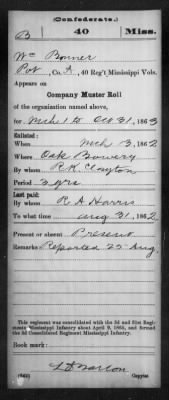 (Confederate.)
B 40 Miss.
Wm Bonner
Pvt, Co. A, 40 Reg't Mississippi Vols.
Appears on
Company Muster Roll
of the organization named above,
for Mch 1 to Oct 31, 1863
Enlisted:
When Mch 3, 1862
Where Oak Bowery
By whom R. K. Clayton
Period 3 yrs
Last paid:
By whom R A Harris
To what time Aug 31, 1862
Present or absent Present
Remarks: Reported 25 Aug.
This regiment was consolidated with the 3d and 31st Regiments Mississippi Infantry about April 9, 1865, and formed the 3d Consolidated Regiment Mississippi Infantry.
Book mark:
(642) Copyist.